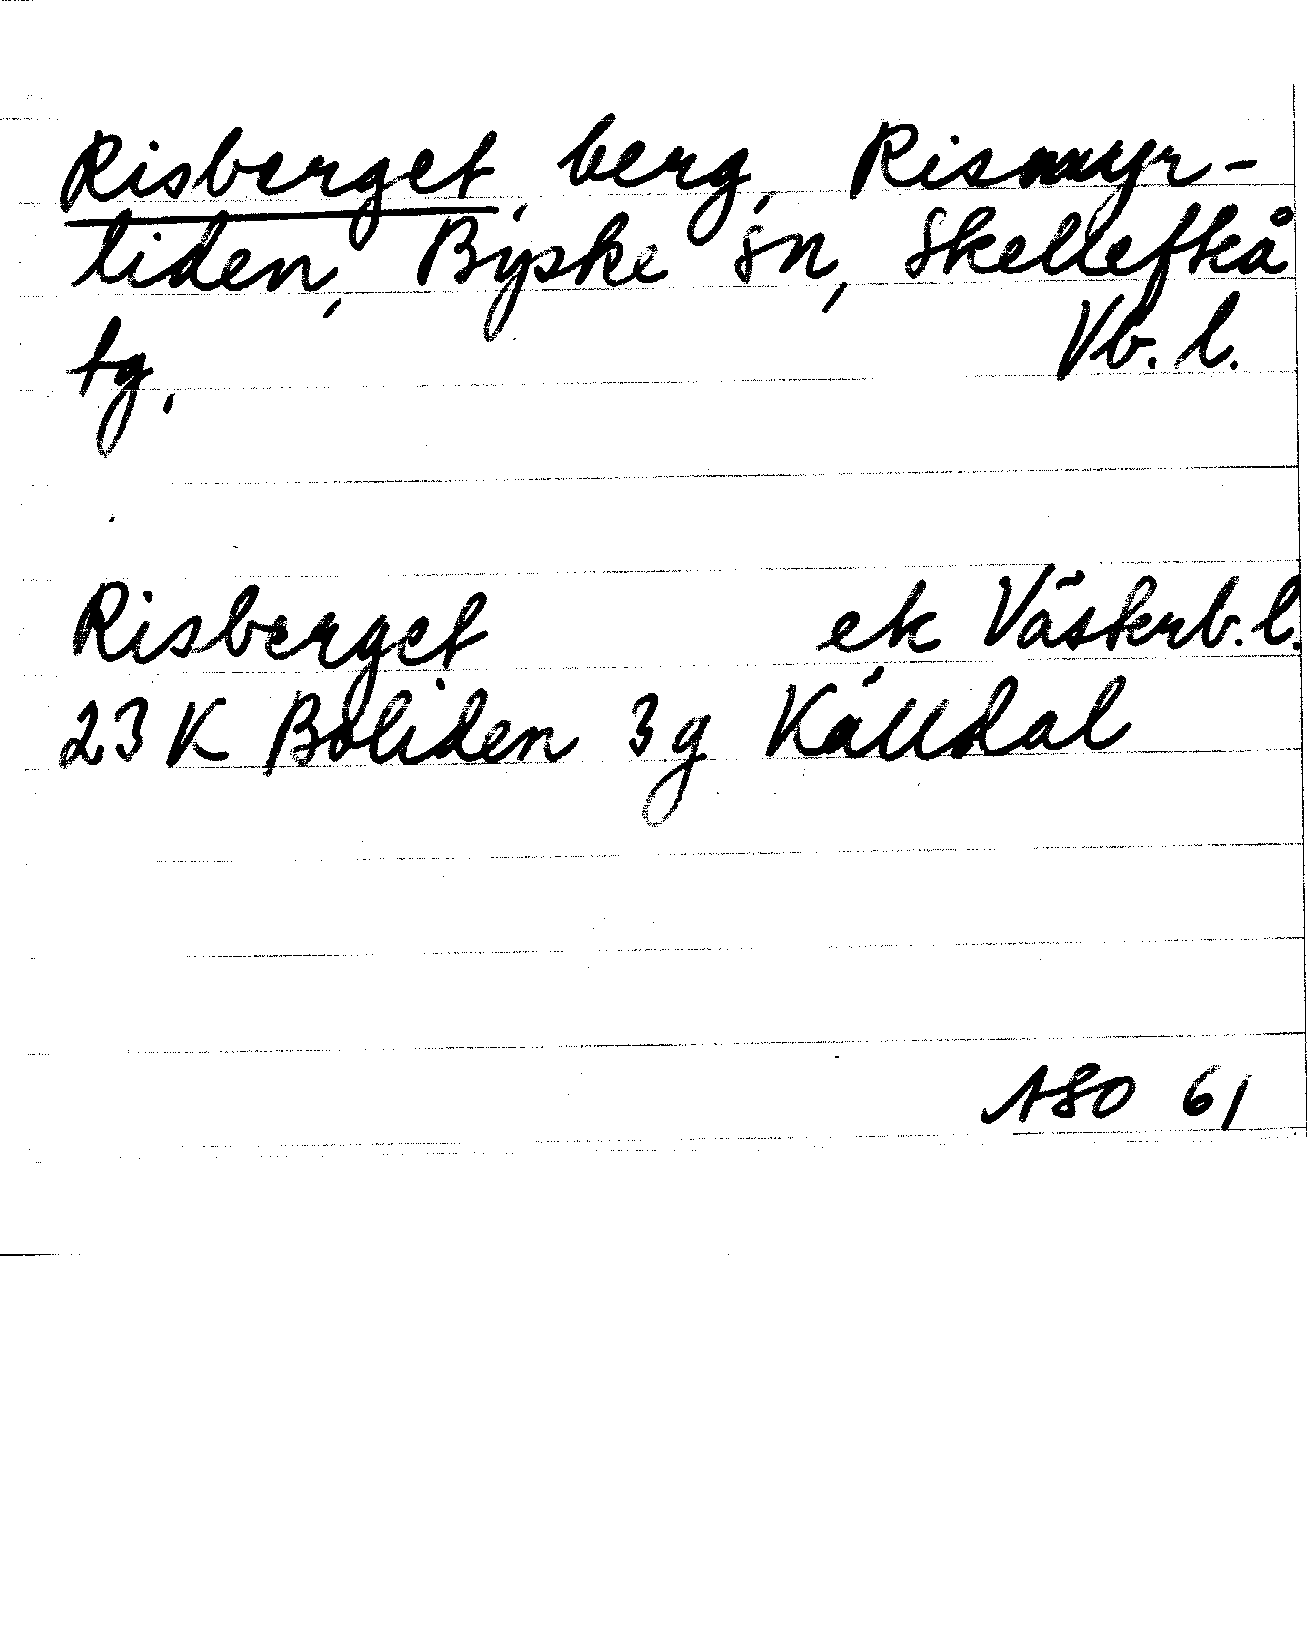 Risberget, berg, Rismyr-
liden, Byske sn, Skellefteå
tg,
Vb. l.
Risberget ek Västerb. l.
23 K Boliden 3g Källdal
ASO 61